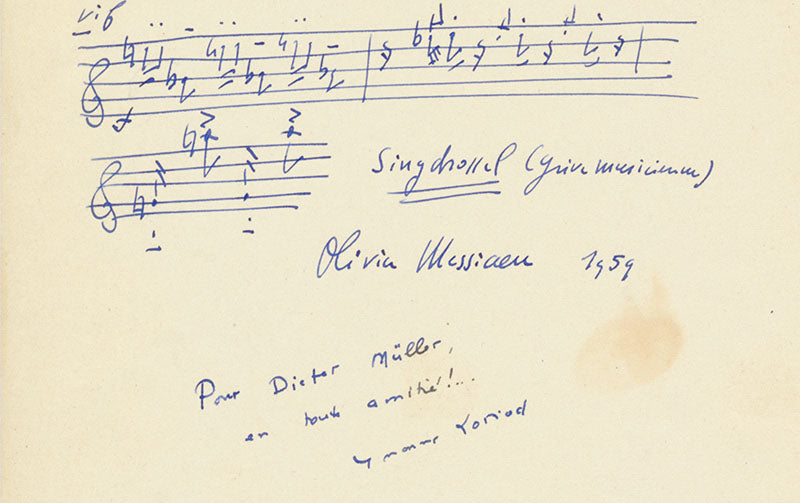 vif
Singdrossel (grive musicienne)
Olivier Messiaen 1959
Pour Dieter Müller,
en toute amitié!...
Yvonne Loriod